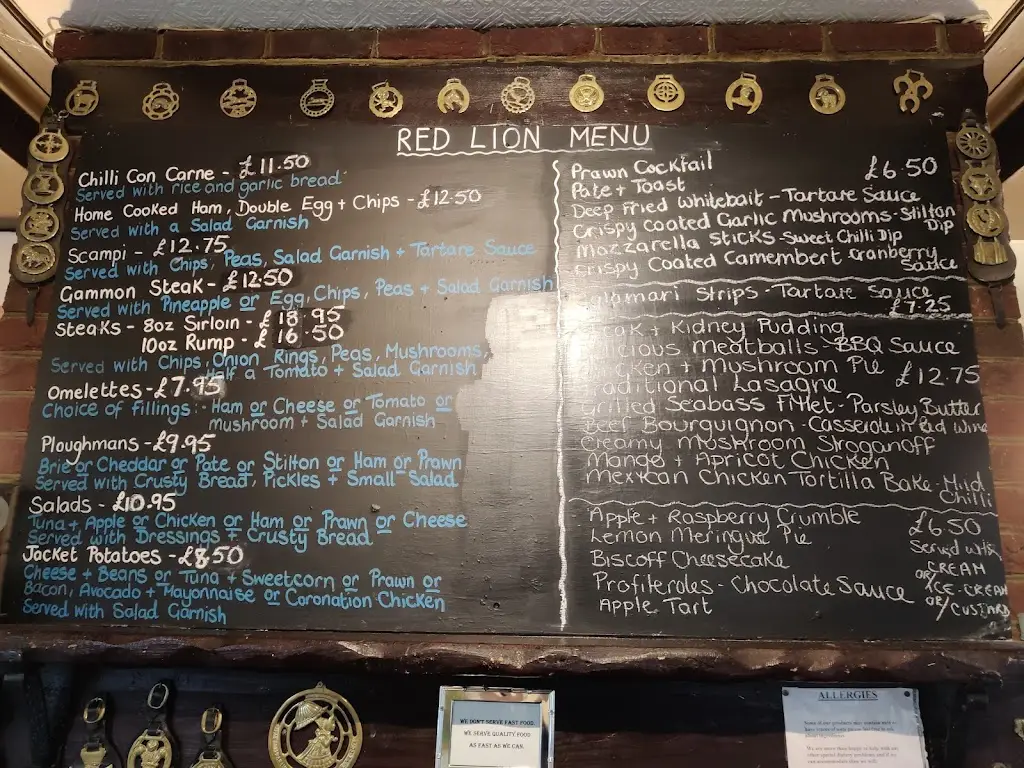 RED LION MENU
Chilli Con Carne - £11.50
Served with rice and garlic bread
Home Cooked Ham, Double Egg + Chips - £12.50
Served with a Salad Garnish
Scampi - £12.75
Served with Chips, Peas, Salad Garnish + Tartare Sauce
Gammon Steak - £12.50
Served with Pineapple or Egg, Chips, Peas + Salad Garnish
Steaks - 8oz Sirloin - £18.95
10oz Rump - £16.50
Served with Chips, Onion Rings, Peas, Mushrooms,
Half a Tomato + Salad Garnish
Omelettes - £7.95
Choice of fillings: Ham or Cheese or Tomato or
mushroom + Salad Garnish
Ploughmans - £9.95
Brie or Cheddar or Pate or Stilton or Ham or Prawn
Served with Crusty Bread, Pickles + Small Salad
Salads - £10.95
Tuna + Apple or Chicken or Ham or Prawn or Cheese
Served with Dressings + Crusty Bread
Jacket Potatoes - £8.50
Cheese + Beans or Tuna + Sweetcorn or Prawn or
Bacon, Avocado + Mayonnaise or Coronation Chicken
Served with Salad Garnish
Prawn Cocktail £6.50
Pate + Toast
Deep Fried Whitebait - Tartare Sauce
Crispy Coated Garlic Mushrooms - Stilton
Dip
Mozzarella Sticks - Sweet Chilli Dip
Crispy Coated Camembert Cranberry
Sauce
Calamari Strips - Tartare Sauce
£7.25
Steak + Kidney Pudding
Delicious Meatballs - BBQ Sauce
Chicken + Mushroom Pie
Traditional Lasagne £12.75
Grilled Seabass Fillet - Parsley Butter
Beef Bourguignon - Casserole in Red Wine
Creamy Mushroom Stroganoff
Mango + Apricot Chicken
Mexican Chicken Tortilla Bake - Mild
Chilli
Apple + Raspberry Crumble £6.50
Lemon Meringue Pie Served with
Biscoff Cheesecake CREAM
Profiteroles - Chocolate Sauce OR/ ICE-CREAM
Apple Tart OR/CUSTARD
WE DON'T SERVE FAST FOOD.
WE SERVE QUALITY FOOD
AS FAST AS WE CAN.
ALLERGIES